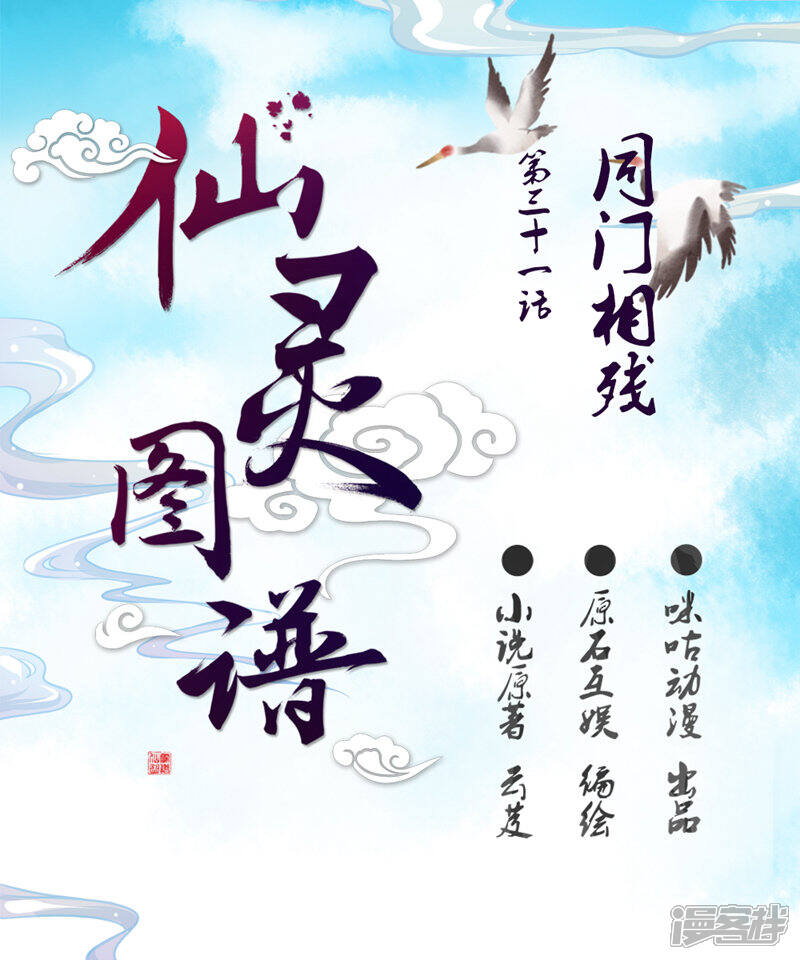 仙灵图谱
第三十一话
同门相残
咪咕动漫 出品
原石互娱 编绘
小说原著 云芨
漫客栈